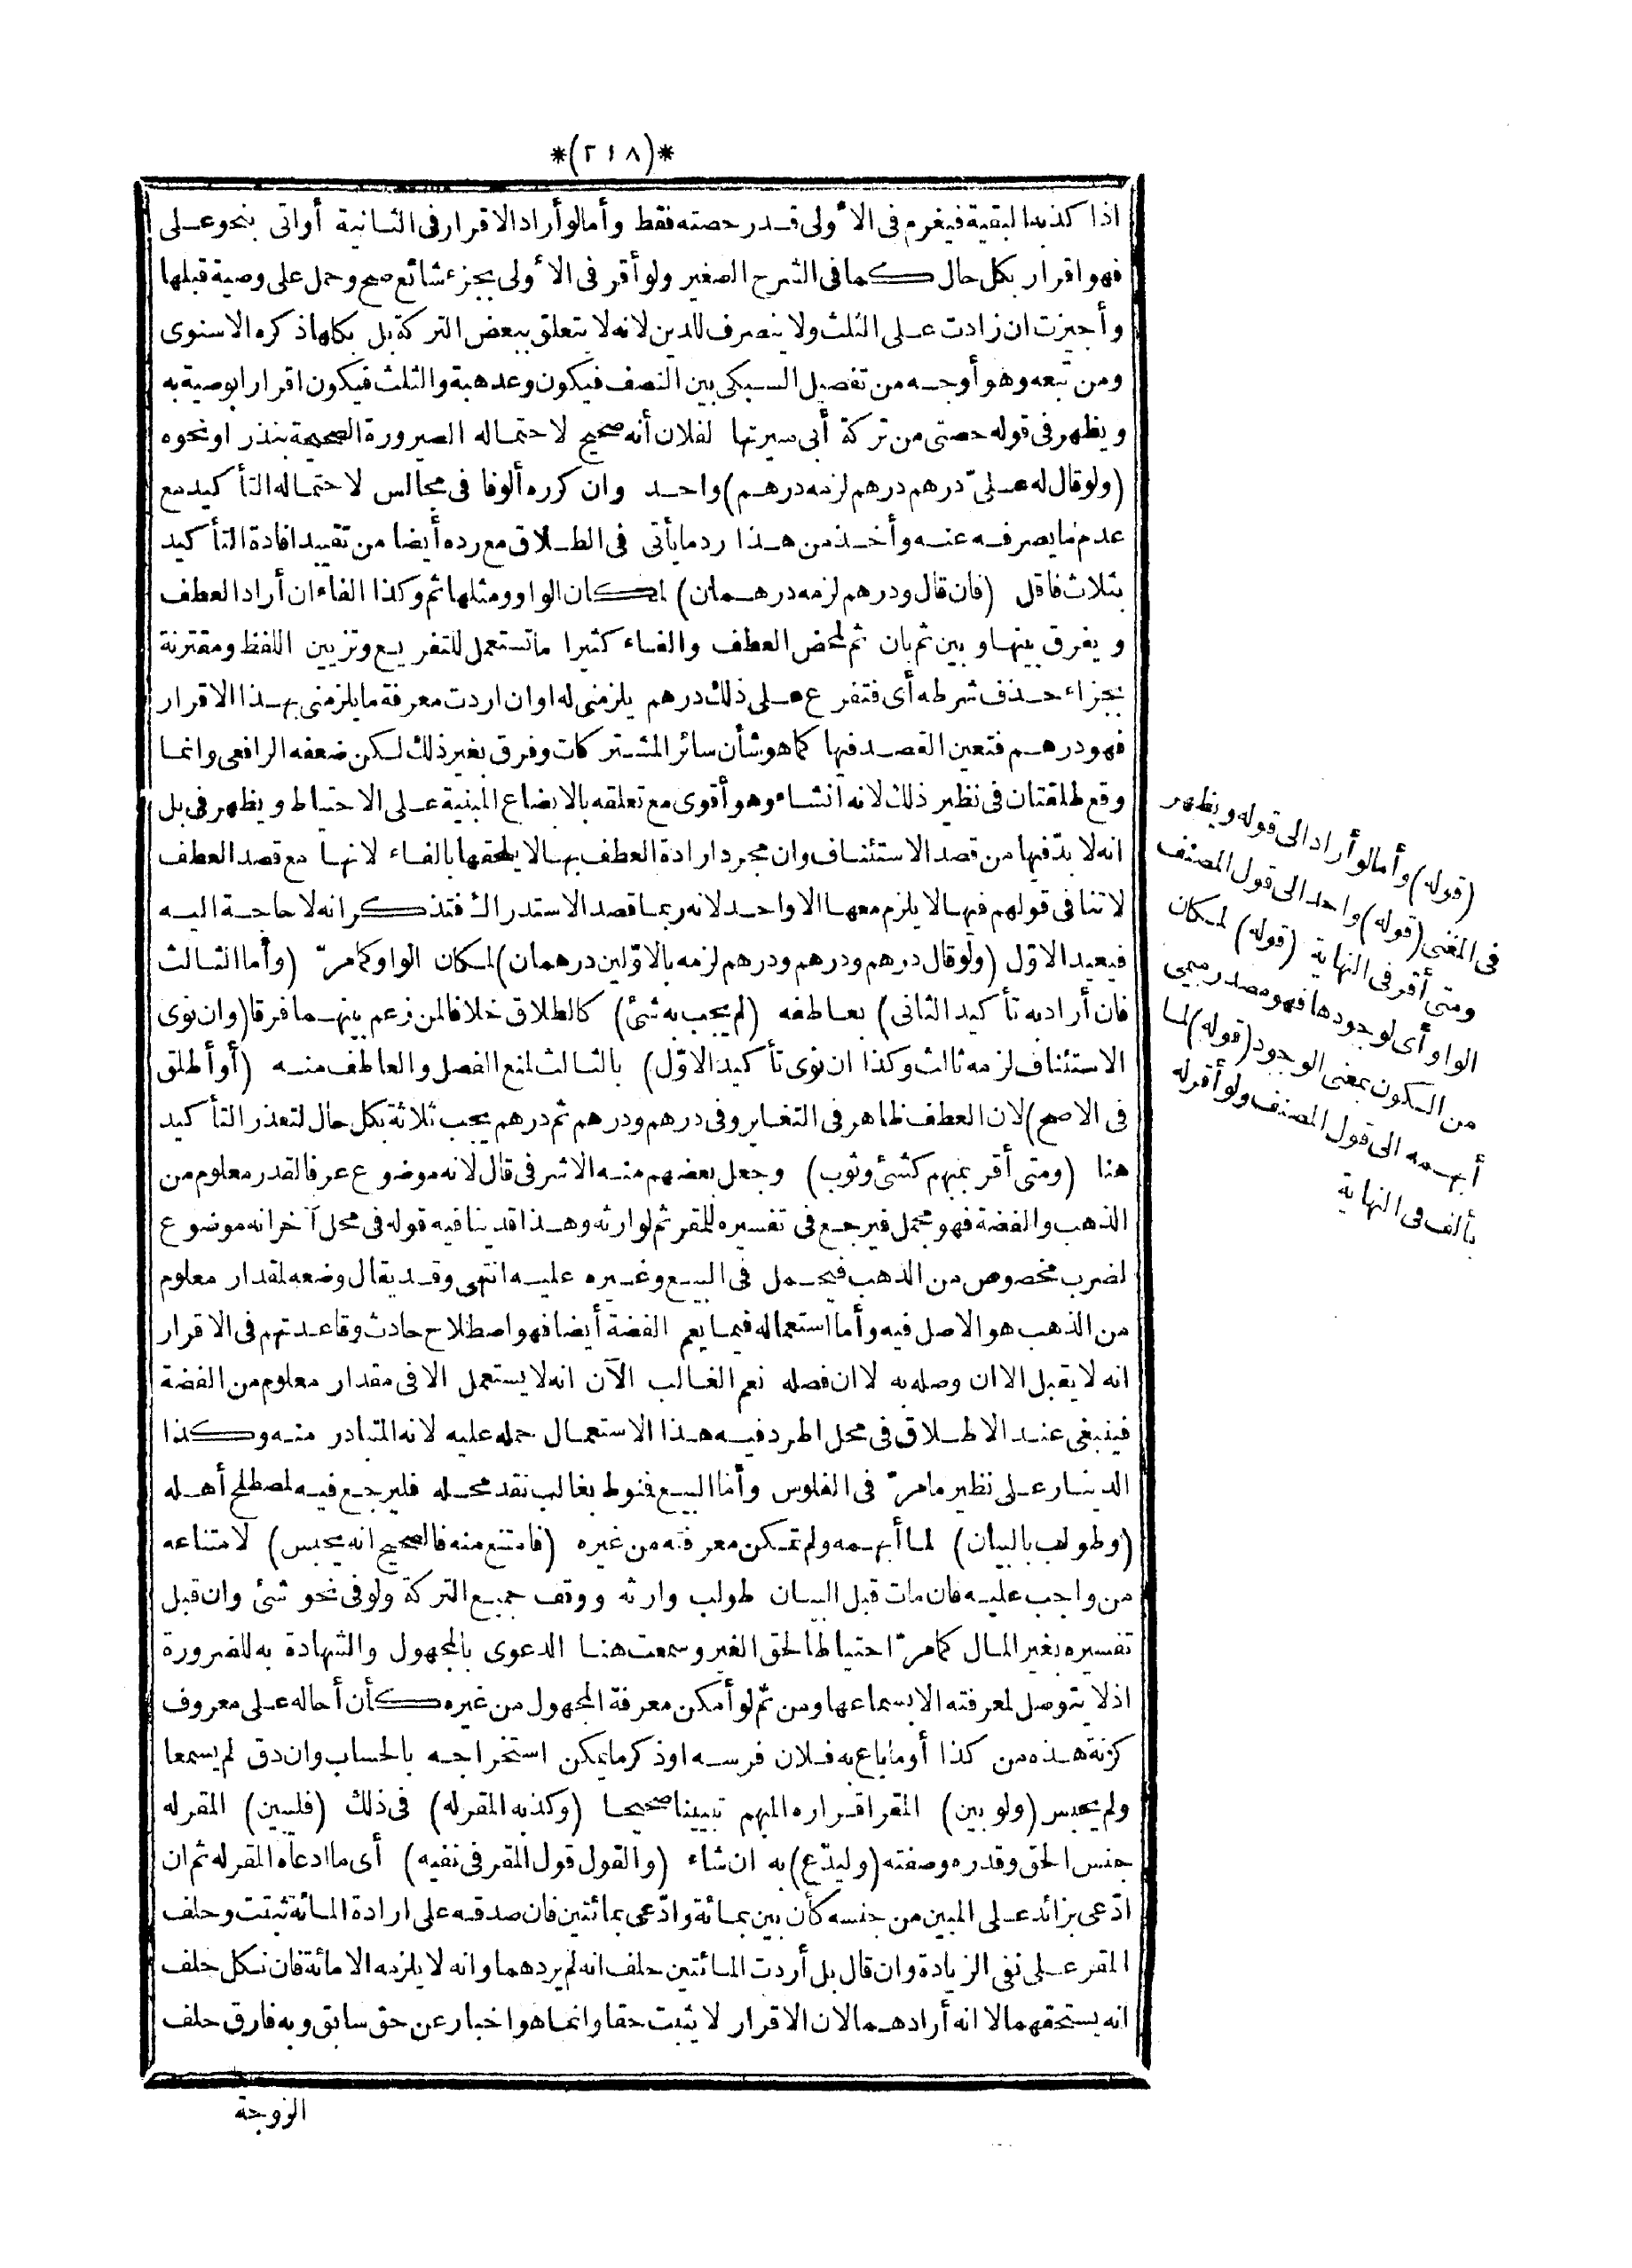 *(٢١٨)*
اذا كذبه البقية فيغرم في الأولى قدر حصته فقط وأما لو أراد الاقرار في الثانية أو اتى بنحو على
فهو اقرار بكل حال كما في الشرح الصغير ولو أقر في الأولى بجزء شائع صح وحمل على وصية قبلها
وأجيزت ان زادت على الثلث ولا ينصرف للدين لانه لا يتعلق ببعض التركة بل بكلها ذكره الاسنوى
ومن تبعه وهو أوجه من تفصيل السبكى بين النصف فيكون وعد هبة والثلث فيكون اقرارا بوصية به
ويظهر في قوله حصتى من تركة أبى صيرتها لفلان أنه صحيح لاحتماله الصيرورة الصحيحة بنذر او نحوه
(ولو قال له علىّ درهم درهم لزمه درهم) واحد وان كرره ألوفا في مجالس لاحتماله التأكيد مع
عدم ما يصرفه عنه وأخذ من هذا رد ما يأتى في الطلاق مع رده أيضا من تقييد افادة التأكيد
بثلاث فاقل (فان قال ودرهم لزمه درهمان) لمكان الواو ومثلها ثم وكذا الفاء ان أراد العطف
ويفرق بينها وبين ثم بان ثم لمحض العطف والفاء كثيرا ما تستعمل للتفريع وتزيين اللفظ ومقترنة
بجزاء حذف شرطه أى فتفرع على ذلك درهم يلزمنى له او ان اردت معرفة ما يلزمنى بهذا الاقرار
فهو درهم فتعين القصد فيها كما هو شأن سائر المشتركات وفرق بغير ذلك لكن ضعفه الرافعى وانما
وقع طلقتان في نظير ذلك لانه انشاء وهو أقوى مع تعلقه بالابضاع المبنية على الاحتياط ويظهر في بل
انه لا بدّ فيها من قصد الاستئناف وان مجرد ارادة العطف بها لا يلحقها بالفاء لانها مع قصد العطف
لا تنافى قولهم فيها لا يلزم معها الا واحد لانه ربما قصد الاستدراك فتذكر انه لا حاجة اليه
فيعيد الاوّل (ولو قال درهم ودرهم ودرهم لزمه بالاوّلين درهمان) لمكان الواو كما مرّ (وأما الثالث
فان أراد به تأكيد الثانى) بعاطفه (لم يجب به شئ) كالطلاق خلافا لمن زعم بينهما فرقا (وان نوى
الاستئناف لزمه ثالث وكذا ان نوى تأكيد الاوّل) بالثالث لمنع الفصل والعاطف منه (أو أطلق
في الاصح) لان العطف ظاهر في التغاير وفى درهم ودرهم ثم درهم يجب ثلاثة بكل حال لتعذر التأكيد
هنا (ومتى أقر بمبهم كشئ وثوب) وجعل بعضهم منه الاشرفى قال لانه موضوع عرفا لقدر معلوم من
الذهب والفضة فهو مجمل فيرجع في تفسيره للمقر ثم لوارثه وهذا قد ينافيه قوله في محل آخر انه موضوع
لضرب مخصوص من الذهب فيحمل في البيع وغيره عليه انتهى وقد يقال وضعه لمقدار معلوم
من الذهب هو الاصل فيه وأما استعماله فيما يعم الفضة أيضا فهو اصطلاح حادث وقاعدتهم في الاقرار
انه لا يقبل الا ان وصله به لا ان فصله نعم الغالب الآن انه لا يستعمل الا في مقدار معلوم من الفضة
فينبغى عند الاطلاق في محل اطرد فيه هذا الاستعمال حمله عليه لانه المتبادر منه وكذا
الدينار على نظير ما مرّ في الفلوس وأما البيع فنوط بغالب نقد محله فليرجع فيه لمصطلح أهله
(وطولب بالبيان) لما أبهمه ولم تمكن معرفته من غيره (فامتنع منه فالصحيح انه يحبس) لامتناعه
من واجب عليه فان مات قبل البيان طولب وارثه ووقف جميع التركة ولو في نحو شئ وان قبل
تفسيره بغير المال كما مرّ احتياطا لحق الغير وسمعت هنا الدعوى بالمجهول والشهادة به للضرورة
اذ لا يتوصل لمعرفته الا بسماعها ومن ثم لو أمكن معرفة المجهول من غيره كأن أحاله على معروف
كزنة هذه من كذا أو ما باع به فلان فرسه او ذكر ما يمكن استخراجه بالحساب وان دق لم يسمعا
ولم يحبس (ولو بين) المقر اقراره المبهم تبيينا صحيحا (وكذبه المقرله) في ذلك (فليبين) المقرله
جنس الحق وقدره وصفته (وليدّع) به ان شاء (والقول قول المقر في نفيه) أى ما ادعاه المقرله ثم ان
ادّعى بزائد على المبين من جنسه كأن بين بمائة وادّعى بمائتين فان صدقه على ارادة المائة ثبتت وحلف
المقر على نفى الزيادة وان قال بل أردت المائتين حلف انه لم يردهما وانه لا يلزمه الا مائة فان نكل حلف
انه يستحقهما لا انه أرادهما لان الاقرار لا يثبت حقا وانما هو اخبار عن حق سابق وبه فارق حلف
الزوجة
(قوله) وأما لو أراد الى قوله ويظهر
في المغنى (قوله) واحد الى قول المصنف
ومتى أقر في النهاية (قوله) لمكان
الواو أى لوجودها فهو مصدر ميمى
من الكون بمعنى الوجود (قوله) لما
أبهمه الى قول المصنف ولو أقر له
بألف في النهاية